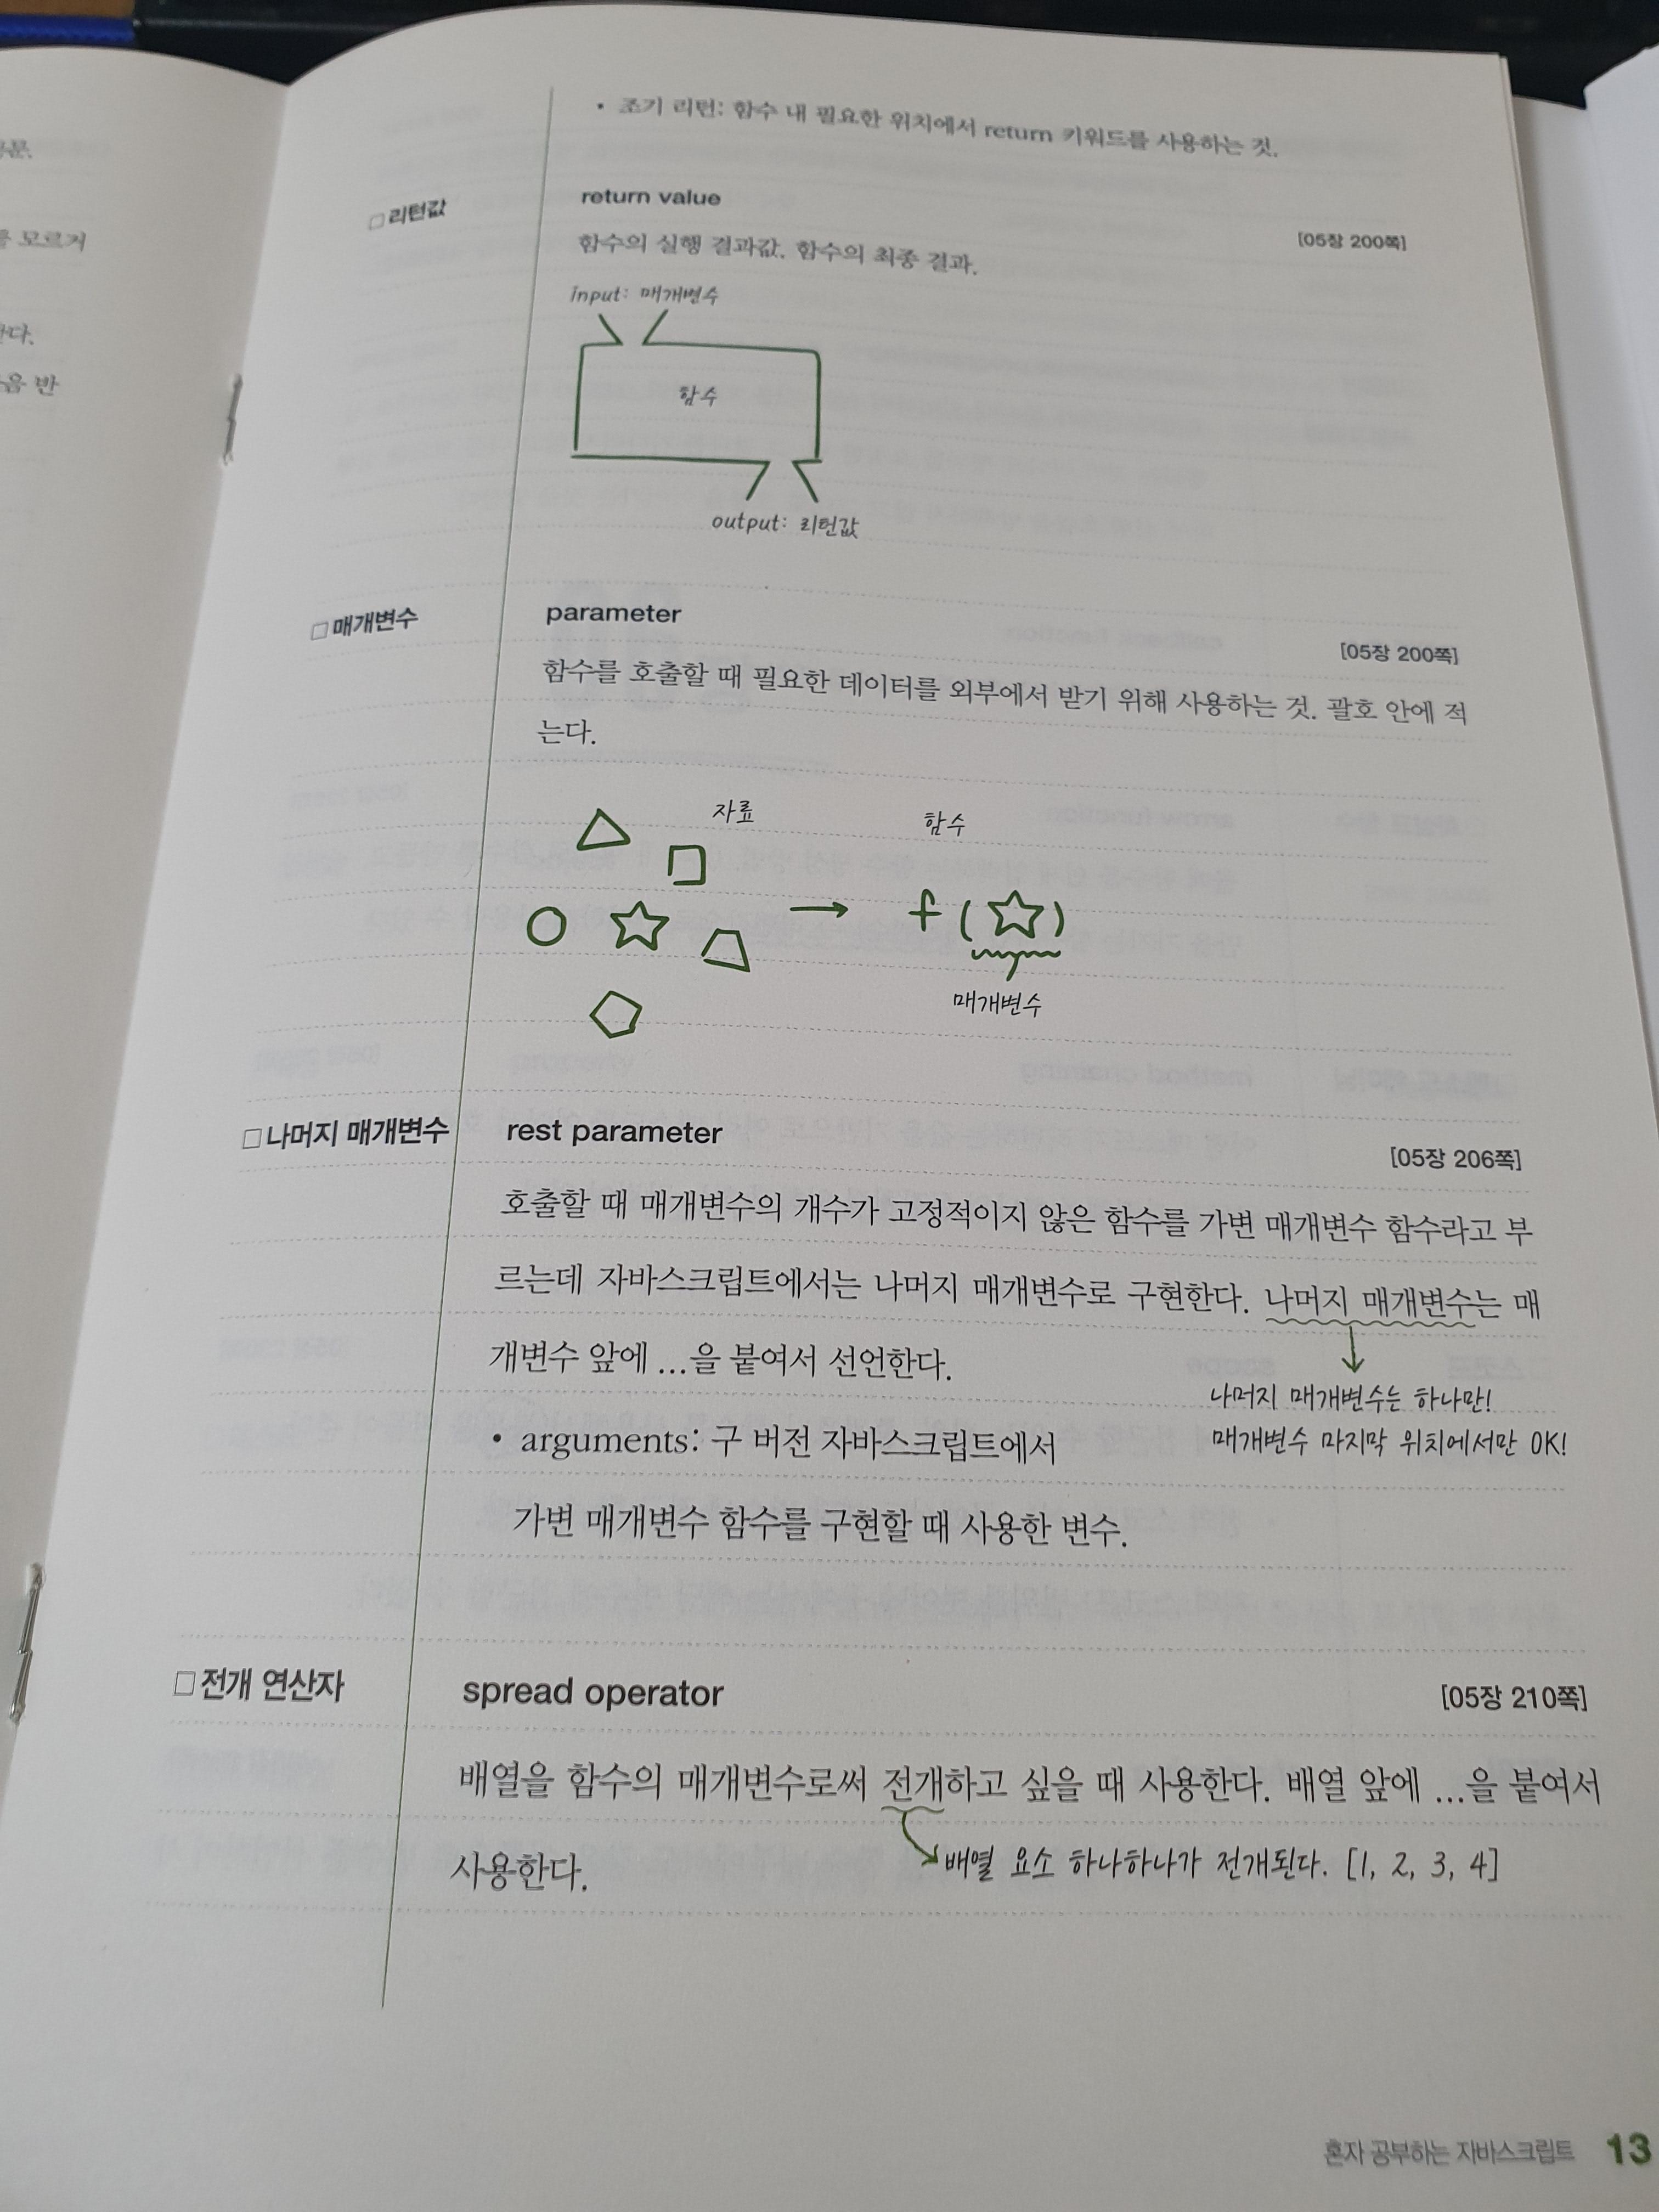 • 조기 리턴: 함수 내 필요한 위치에서 return 키워드를 사용하는 것.
□ 리턴값 return value [05장 200쪽]
함수의 실행 결과값. 함수의 최종 결과.
input: 매개변수
함수
output: 리턴값
□ 매개변수 parameter [05장 200쪽]
함수를 호출할 때 필요한 데이터를 외부에서 받기 위해 사용하는 것. 괄호 안에 적
는다.
자료 함수
f ( )
매개변수
□ 나머지 매개변수 rest parameter [05장 206쪽]
호출할 때 매개변수의 개수가 고정적이지 않은 함수를 가변 매개변수 함수라고 부
르는데 자바스크립트에서는 나머지 매개변수로 구현한다. 나머지 매개변수는 매
개변수 앞에 ...을 붙여서 선언한다.
나머지 매개변수는 하나만!
매개변수 마지막 위치에서만 OK!
• arguments: 구 버전 자바스크립트에서
가변 매개변수 함수를 구현할 때 사용한 변수.
□ 전개 연산자 spread operator [05장 210쪽]
배열을 함수의 매개변수로써 전개하고 싶을 때 사용한다. 배열 앞에 ...을 붙여서
사용한다.
배열 요소 하나하나가 전개된다. [1, 2, 3, 4]
혼자 공부하는 자바스크립트 13